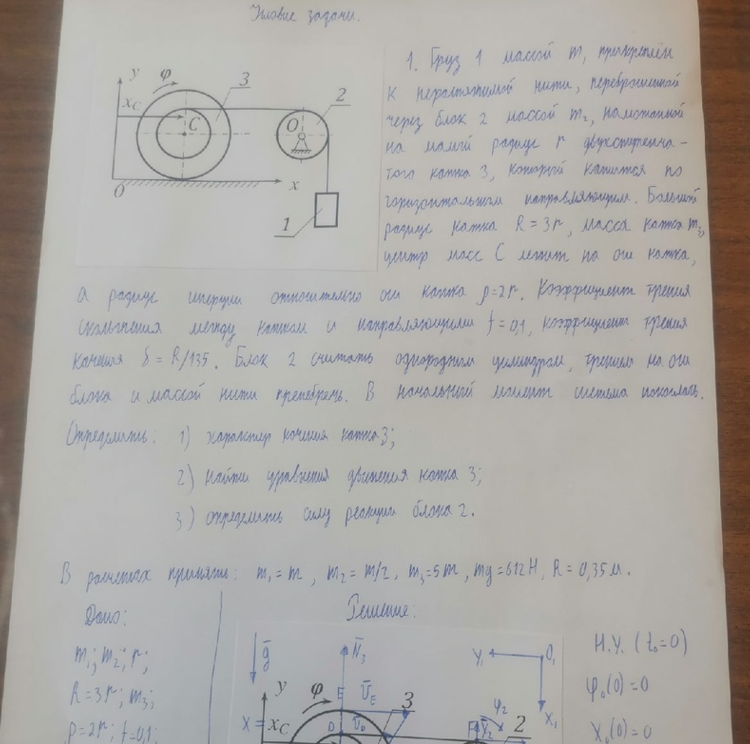 Условие задачи.
y
φ
3
x_C
C
2
O
O
x
1
1. Груз 1 массой m, прикреплён
к нерастяжимой нити, переброшенной
через блок 2 массой m₂, намотанной
на малый радиус r двухступенча-
того катка 3, который катится по
горизонтальным направляющим. Большой
радиус катка R = 3r, масса катка m₃,
центр масс C лежит на оси катка,
а радиус инерции относительно оси катка ρ=2r. Коэффициент трения
скольжения между катком и направляющими f=0,1, коэффициент трения
качения δ = R/135. Блок 2 считать однородным цилиндром, трением на оси
блока и массой нити пренебречь. В начальный момент система покоилась.
Определить: 1) характер качения катка 3;
2) найти уравнения движения катка 3;
3) определить силу реакции блока 2.
В расчетах принять: m₁=m, m₂=m/2, m₃=5m, mg=612 Н, R=0,35 м.
Дано:
Решение:
m₁; m₂; r;
R=3r; m₃;
ρ=2r; f=0,1;
g
N₃
y
φ
E
U_E
3
X =
x_C
D
U_D
Y₁
O₁
X₁
φ₂
2
Н.У. (t₀=0)
φ₀(0)=0
X₀(0)=0